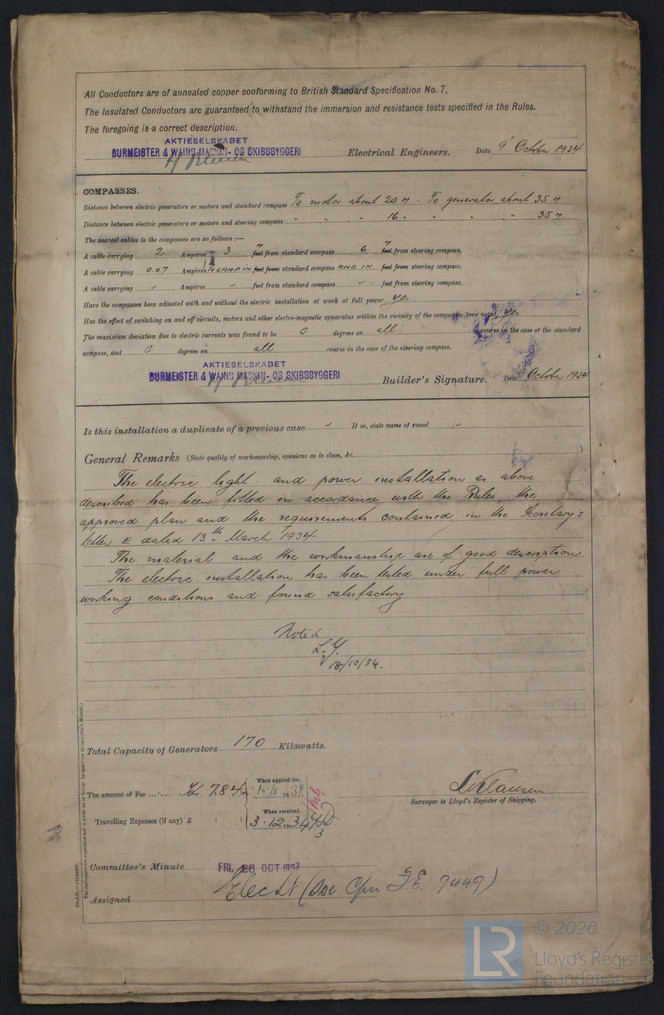 All Conductors are of annealed copper conforming to British Standard Specification No. 7.
The Insulated Conductors are guaranteed to withstand the immersion and resistance tests specified in the Rules.
The foregoing is a correct description.
AKTIESELSKABET
BURMEISTER & WAINS MASKIN- OG SKIBSBYGGERI Electrical Engineers. Date 9' October 1934
COMPASSES.
Distance between electric generators or motors and standard compass To motor about 20 m - To generator about 35 m
Distance between electric generators or motors and steering compass " " 16 " " " " 35 m
The nearest cables to the compasses are as follows:—
A cable carrying 2 Ampères 3 m feet from standard compass 6 m feet from steering compass.
A cable carrying 0.07 Ampères LEAD IN feet from standard compass AND IN feet from steering compass.
A cable carrying " Ampères " feet from standard compass " feet from steering compass.
Have the compasses been adjusted with and without the electric installation at work at full power yes
Has the effect of switching on and off circuits, motors and other electro-magnetic apparatus within the vicinity of the compasses been noted yes
The maximum deviation due to electric currents was found to be 0 degrees on all course in the case of the standard
compass, and 0 degrees on all course in the case of the steering compass.
AKTIESELSKABET
BURMEISTER & WAINS MASKIN- OG SKIBSBYGGERI Builder's Signature. Date October 1934
Is this installation a duplicate of a previous case " If so, state name of vessel "
General Remarks (State quality of workmanship, opinions as to class, &c.
The electric light and power installation as above
described has been fitted in accordance with the Rules, the
approved plan and the requirements contained in the Secretary's
letter E dated 13th March 1934
The material and the workmanship are of good description
The electric installation has been tested under full power
working conditions and found satisfactory
Noted
18/10/34.
Total Capacity of Generators 170 Kilowatts.
The amount of Fee Kr. 784 When applied for, 10/10 1934
Travelling Expenses (if any) £ When received, 3.12.1934
Surveyor to Lloyd's Register of Shipping.
Committee's Minute FRI. 26 OCT 193
Assigned Elec. Lt (See Cpn F.E. 9449)
© 2020
LR Lloyd's Register
Foundation